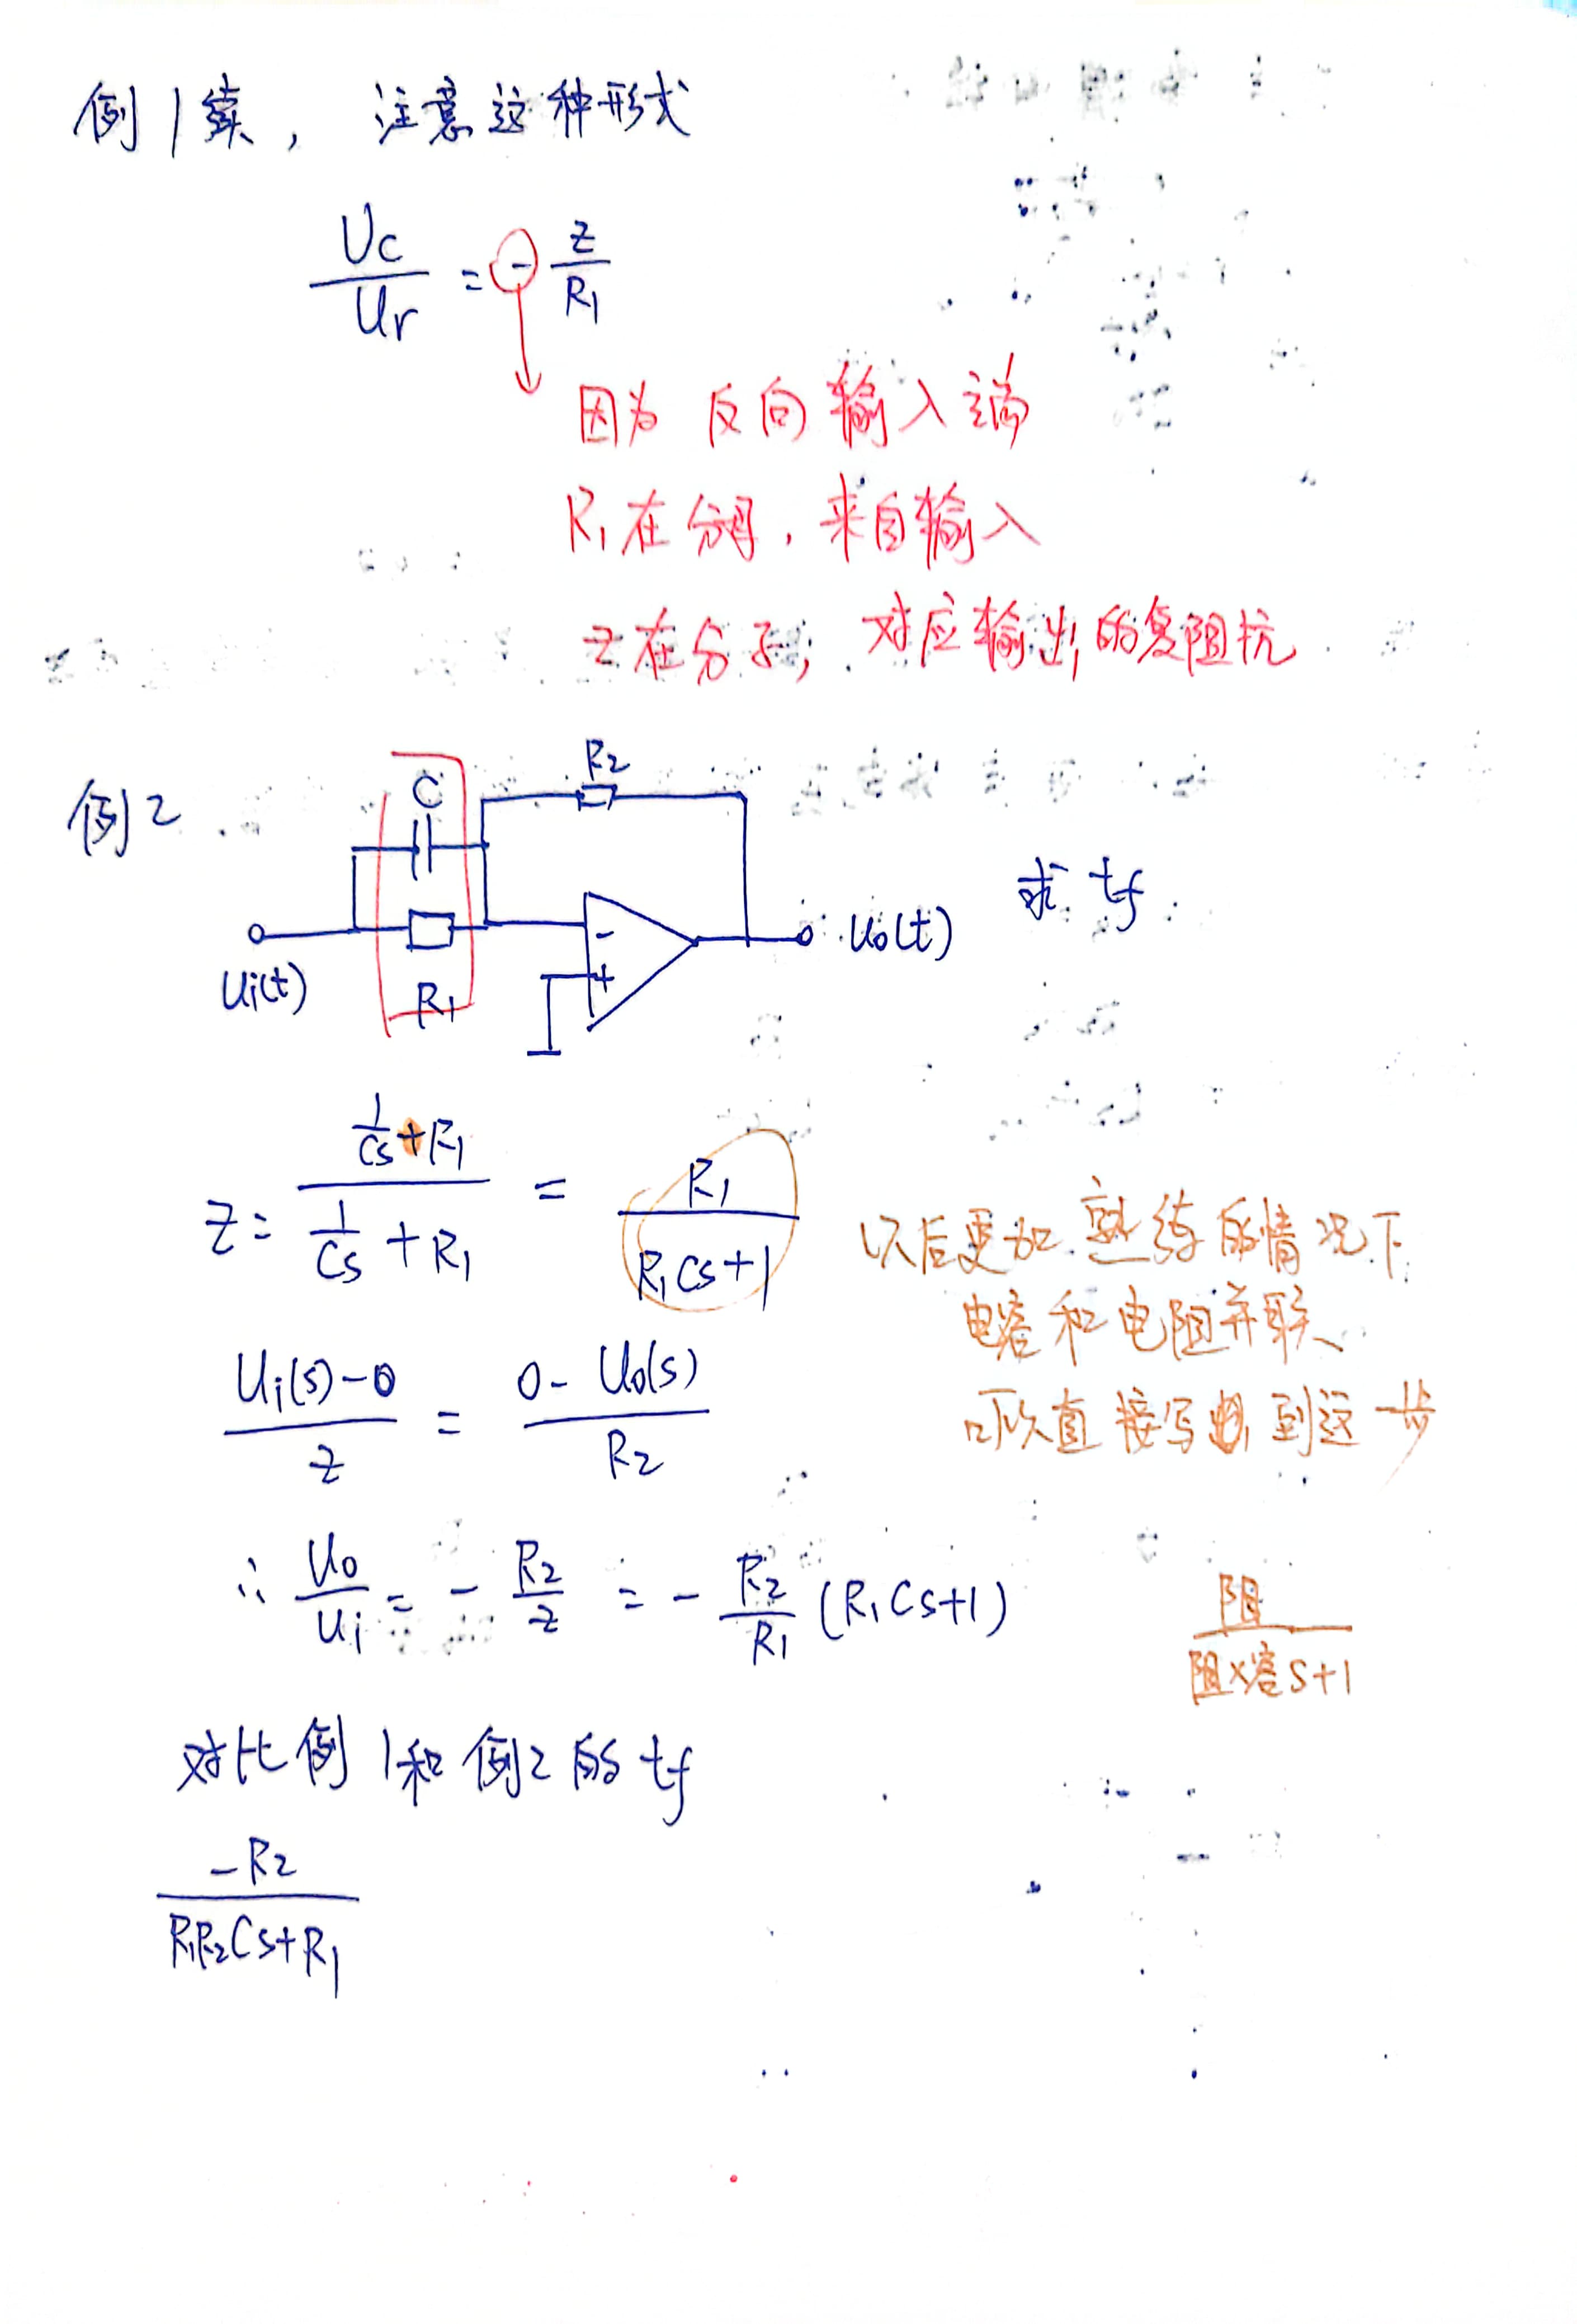 例1续， 注意这种形式
Uc/Ur = - Z/R1
因为反向输入端
R1在分母，来自输入
Z在分子，对应输出的复阻抗
例2
C
R2
R1
Ui(t)
-
+
Uo(t)
求tf
Z = (1/Cs + R1)/(1/Cs + R1) = R1/(R1Cs+1)
以后更加熟练的情况下
电容和电阻并联
可以直接写出到这一步
(Ui(s)-0)/Z = (0-Uo(s))/R2
∴ Uo/Ui = - R2/Z = - R2/R1 (R1Cs+1)
阻/(阻×容S+1)
对比例1和例2的tf
-R2/(R1R2Cs+R1)